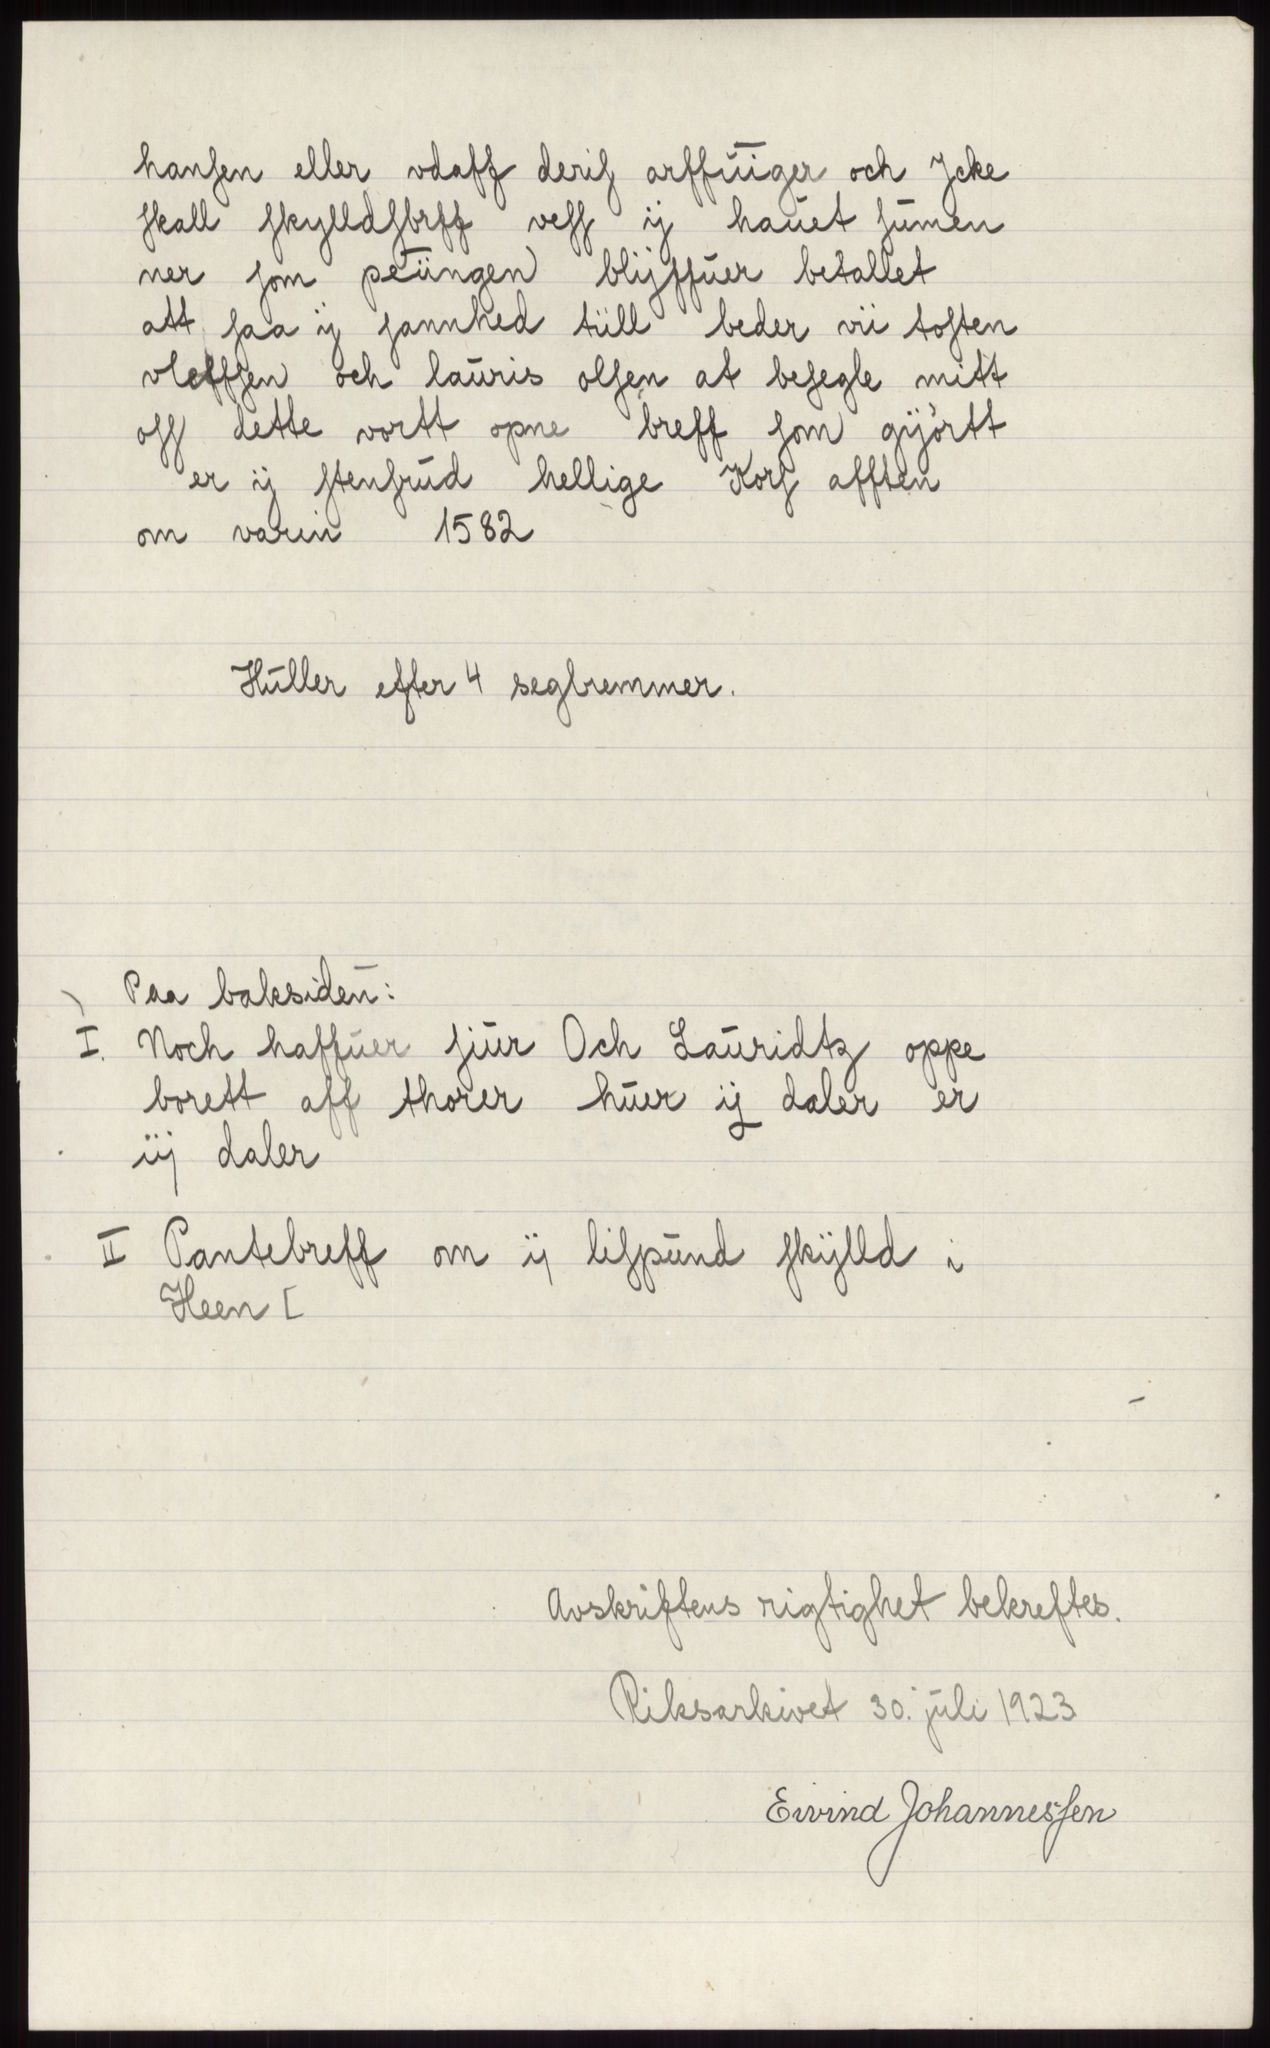 hansen eller vdaff deris arffuiger och Jcke
skall skylldsbrff vess ij hauet sumen
ner som peüngen blijffuer betallet
att saa ij sannhed tüll beder vii tosten
vleffsen och lauris olsen at besegle mitt
oss dette vortt opne breff som gijörtt
er ij stensrud hellige Kors afften
om varen 1582
Huller efter 4 seglremmer.
Paa baksiden:
I. Noch haffuer siur Och Lauridtz oppe
borett aff thorer huer ij daler er
iij daler
II Pantebreff om ij lispund skÿlld i
Heen [
Avskriftens rigtighet bekreftes.
Riksarkivet 30. juli 1923
Eivind Johannessen